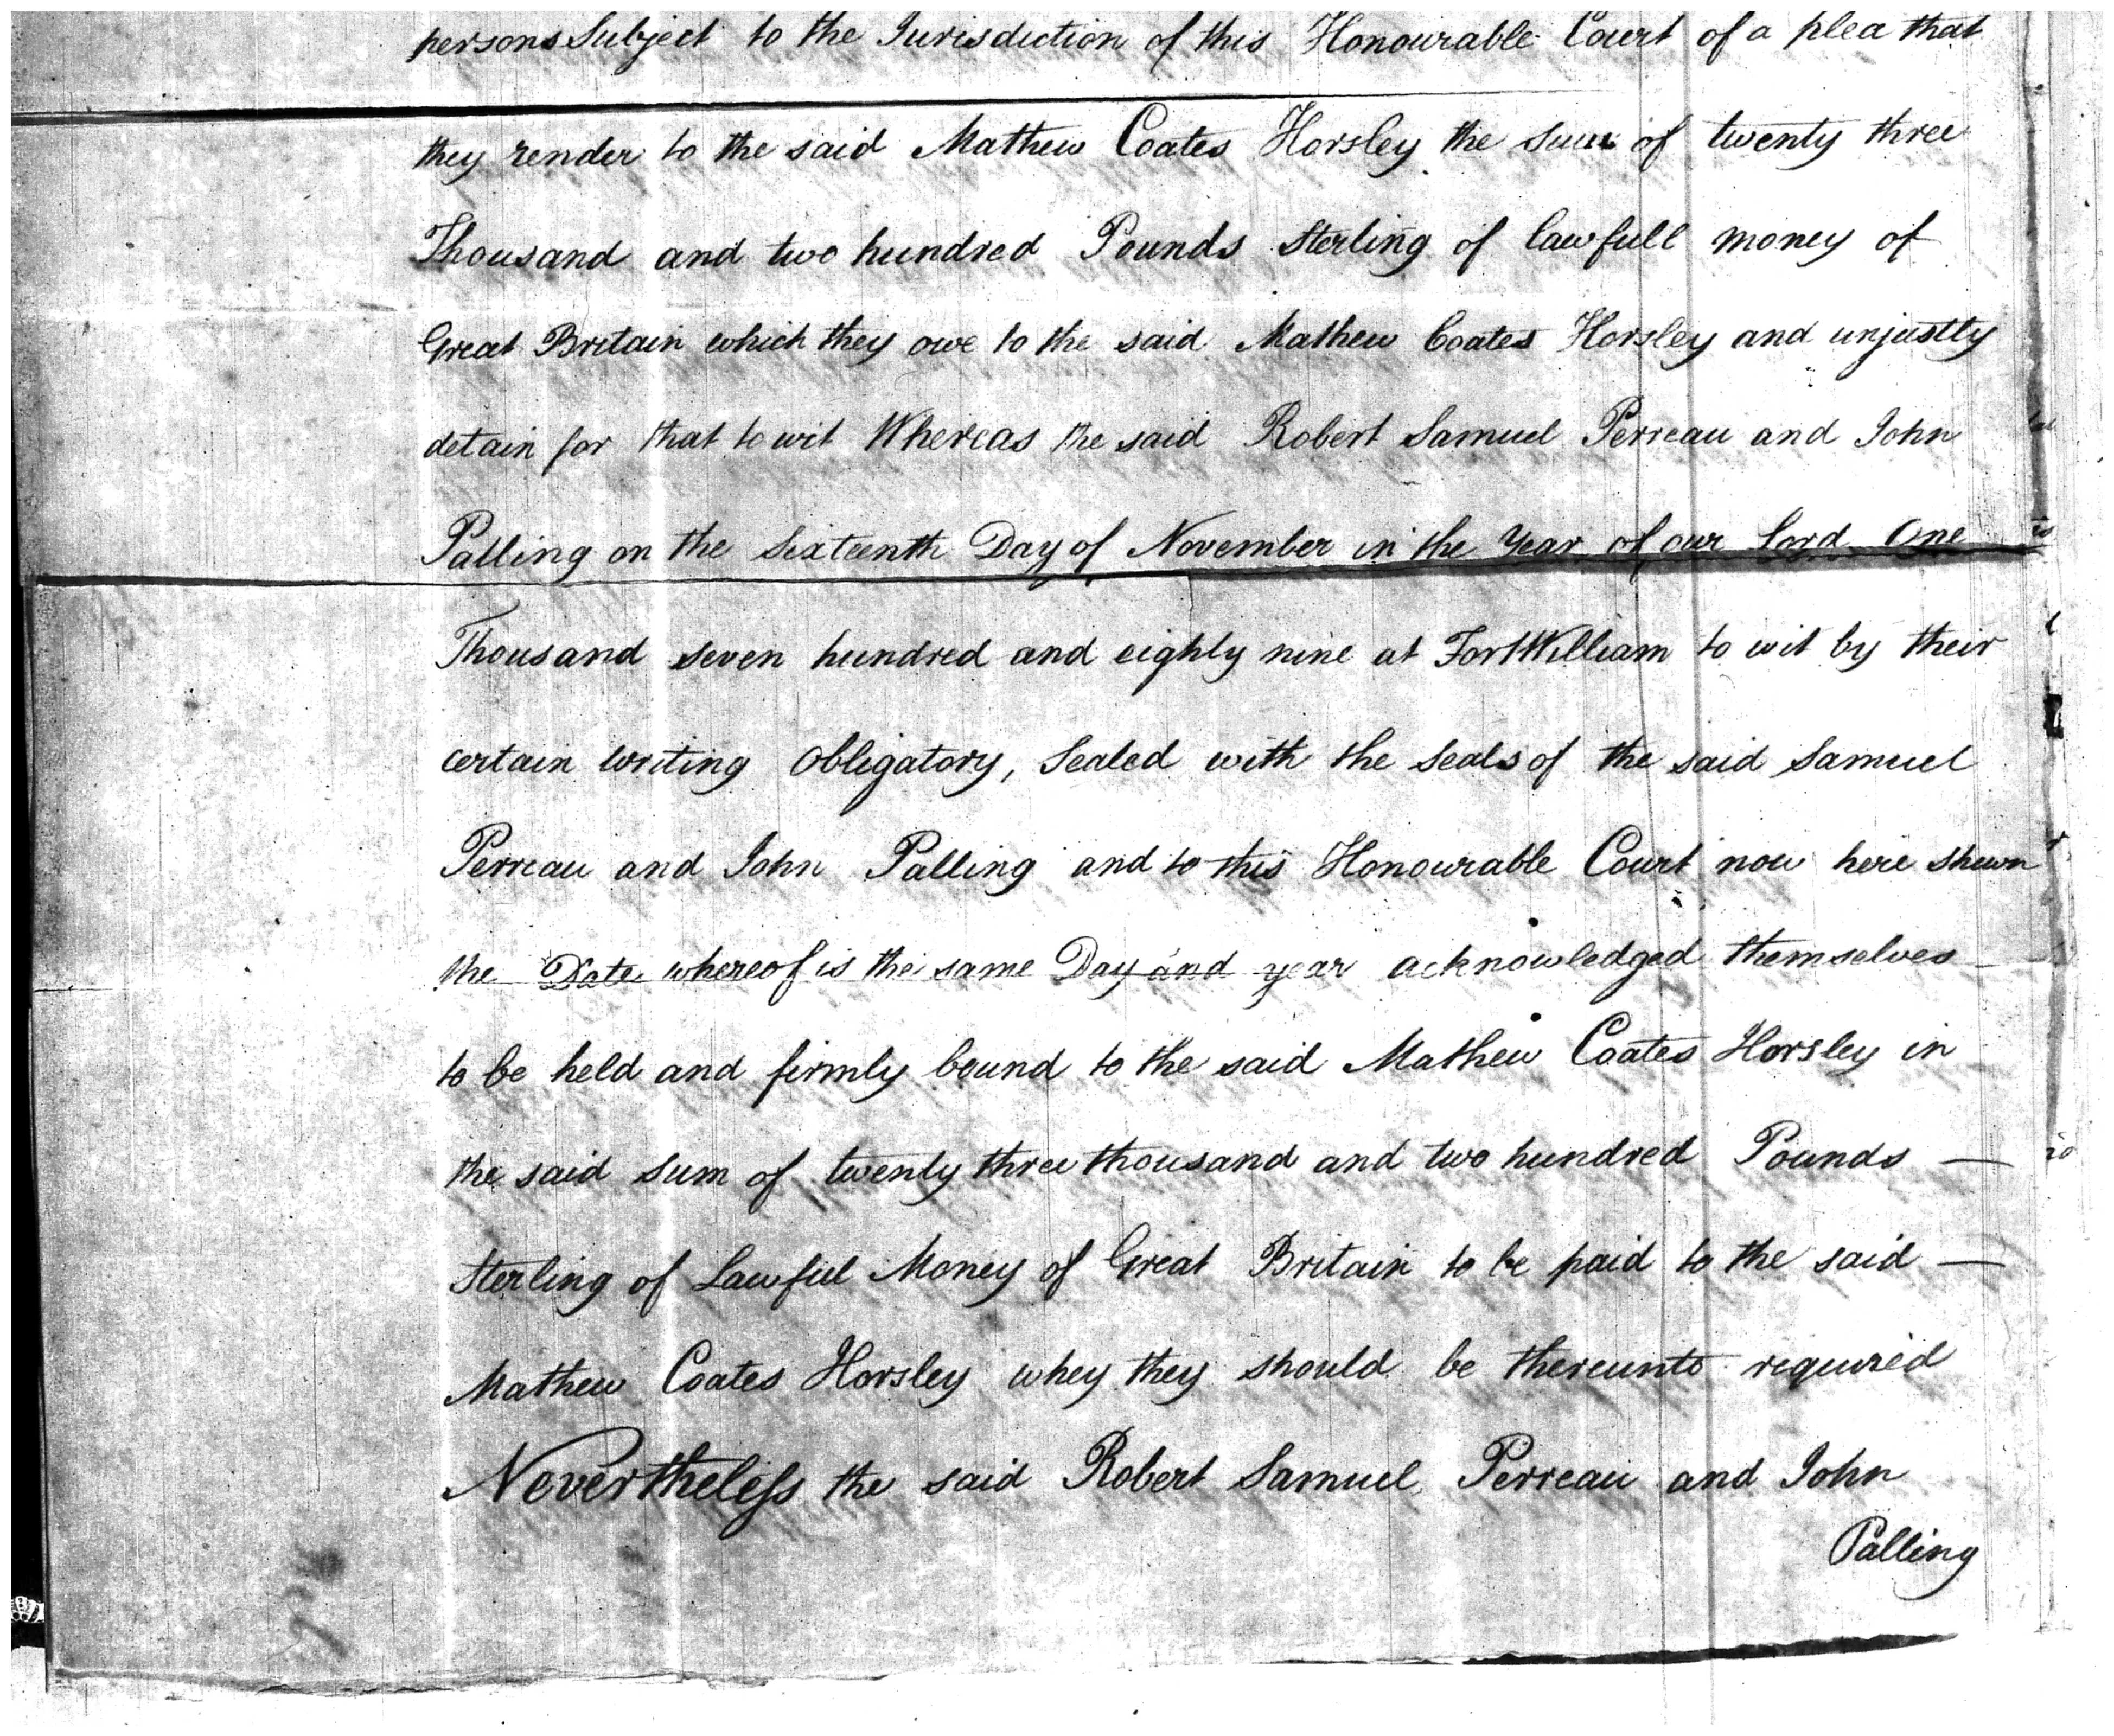 persons Subject to the Jurisdiction of this Honourable Court of a plea that
they render to the said Mathew Coates Horsley the sum of twenty three
Thousand and two hundred Pounds Sterling of lawfull money of
Great Britain which they owe to the said Mathew Coates Horsley and unjustly
detain for that to wit Whereas the said Robert Samuel Perreau and John
Palling on the Sixteenth Day of November in the Year of our Lord One
Thousand seven hundred and eighty nine at Fort William to wit by their
certain writing Obligatory, Sealed with the Seals of the said Samuel
Perreau and John Palling and to this Honourable Court now here shewn
the Date whereof is the same Day and year acknowledged themselves
to be held and firmly bound to the said Mathew Coates Horsley in
the said Sum of twenty three thousand and two hundred Pounds —
Sterling of Lawful Money of Great Britain to be paid to the said —
Mathew Coates Horsley whey they should be thereunto required
Nevertheless the said Robert Samuel Perreau and John
Palling